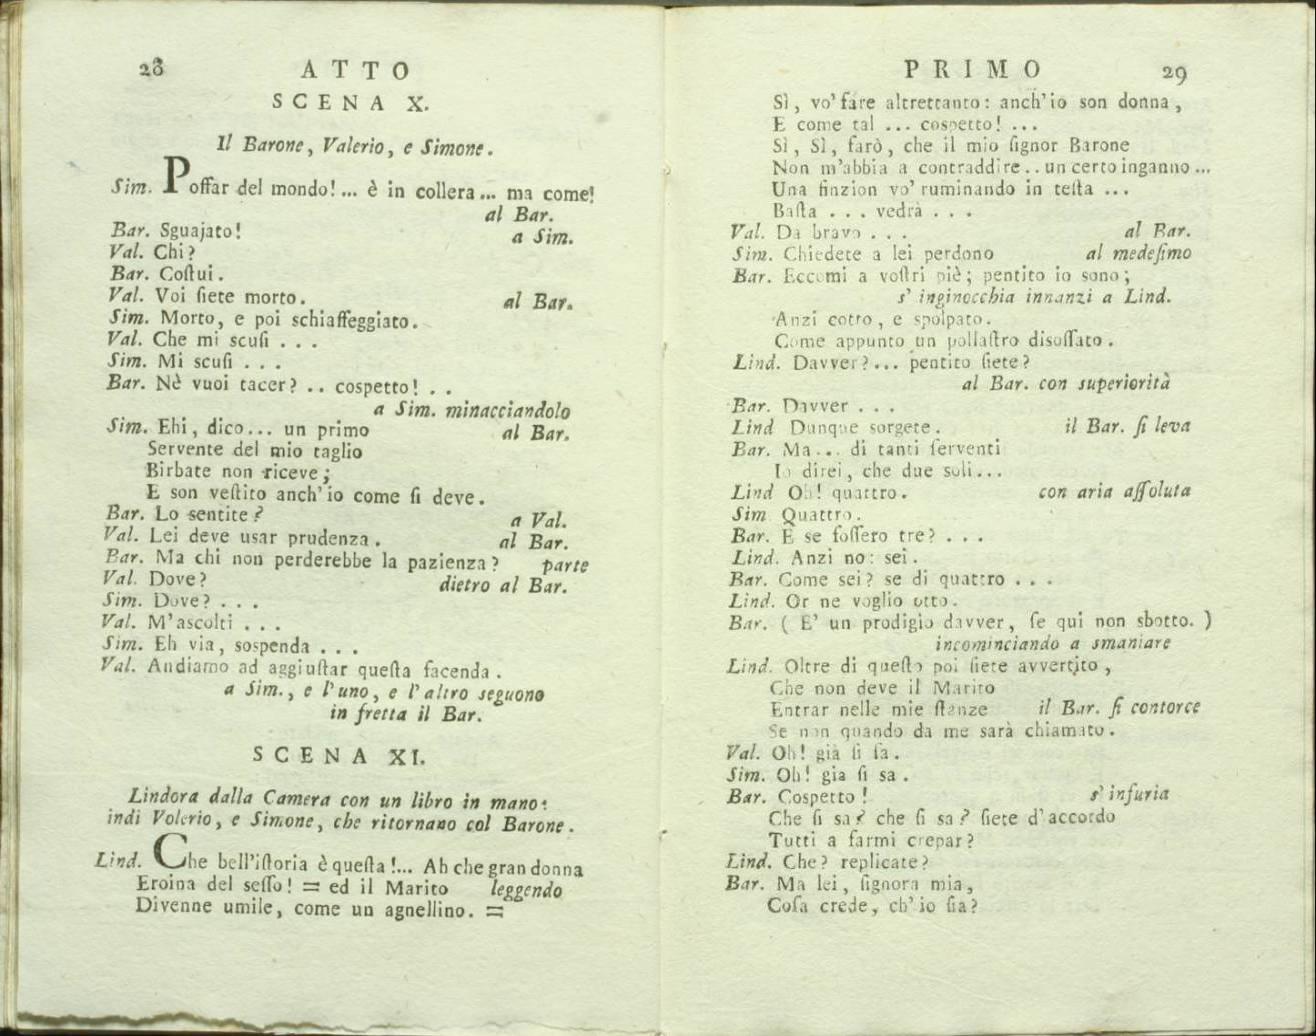 28 ATTO
SCENA X.
Il Barone, Valerio, e Simone.
Sim. Poffar del mondo!... è in collera... ma come!
al Bar.
Bar. Sguajato! a Sim.
Val. Chi?
Bar. Coſtui.
Val. Voi ſiete morto. al Bar.
Sim. Morto, e poi schiaffeggiato.
Val. Che mi scuſi . . .
Sim. Mi scuſi . . .
Bar. Nè vuoi tacer? .. cospetto! . .
a Sim. minacciandolo
Sim. Ehi, dico... un primo al Bar.
Servente del mio taglio
Birbate non riceve;
E son veſtito anch'io come ſi deve.
Bar. Lo sentite? a Val.
Val. Lei deve usar prudenza. al Bar.
Bar. Ma chi non perderebbe la pazienza? parte
Val. Dove? dietro al Bar.
Sim. Dove? . . .
Val. M'ascolti . . .
Sim. Eh via, sospenda . . .
Val. Andiamo ad aggiuſtar queſta facenda.
a Sim., e l'uno, e l'altro seguono
in fretta il Bar.
SCENA XI.
Lindora dalla Camera con un libro in mano:
indi Volerio, e Simone, che ritornano col Barone.
Lind. Che bell'iſtoria è queſta!... Ah che gran donna
Eroina del seſſo! = ed il Marito leggendo
Divenne umile, come un agnellino. =
PRIMO 29
Sì, vo' fare altrettanto: anch'io son donna,
E come tal ... cospetto! ...
Sì, Sì, farò, che il mio ſignor Barone
Non m'abbia a contraddire.. un certo inganno...
Una finzion vo' ruminando in teſta ...
Baſta . . . vedrà . . .
Val. Da bravo . . . al Bar.
Sim. Chiedete a lei perdono al medeſimo
Bar. Eccomi a voſtri piè; pentito io sono;
s' inginocchia innanzi a Lind.
Anzi cotto, e spolpato.
Come appunto un pollaſtro disoſſato.
Lind. Davver?... pentito ſiete?
al Bar. con superiorità
Bar. Davver . . .
Lind Dunque sorgete. il Bar. ſi leva
Bar. Ma... di tanti ſerventi
Io direi, che due soli...
Lind Oh! quattro. con aria aſſoluta
Sim Quattro.
Bar. E se foſſero tre? . . .
Lind. Anzi no: sei.
Bar. Come sei? se di quattro . . .
Lind. Or ne voglio otto.
Bar. ( E' un prodigio davver, ſe qui non sbotto. )
incominciando a smaniare
Lind. Oltre di queſto poi ſiete avvertito,
Che non deve il Marito
Entrar nelle mie ſtanze il Bar. ſi contorce
Se non quando da me sarà chiamato.
Val. Oh! già ſi ſa.
Sim. Oh! gia ſi sa.
Bar. Cospetto! s' infuria
Che ſi sa? che ſi sa? ſiete d'accordo
Tutti a farmi crepar?
Lind. Che? replicate?
Bar. Ma lei, ſignora mia,
Coſa crede, ch'io ſia?